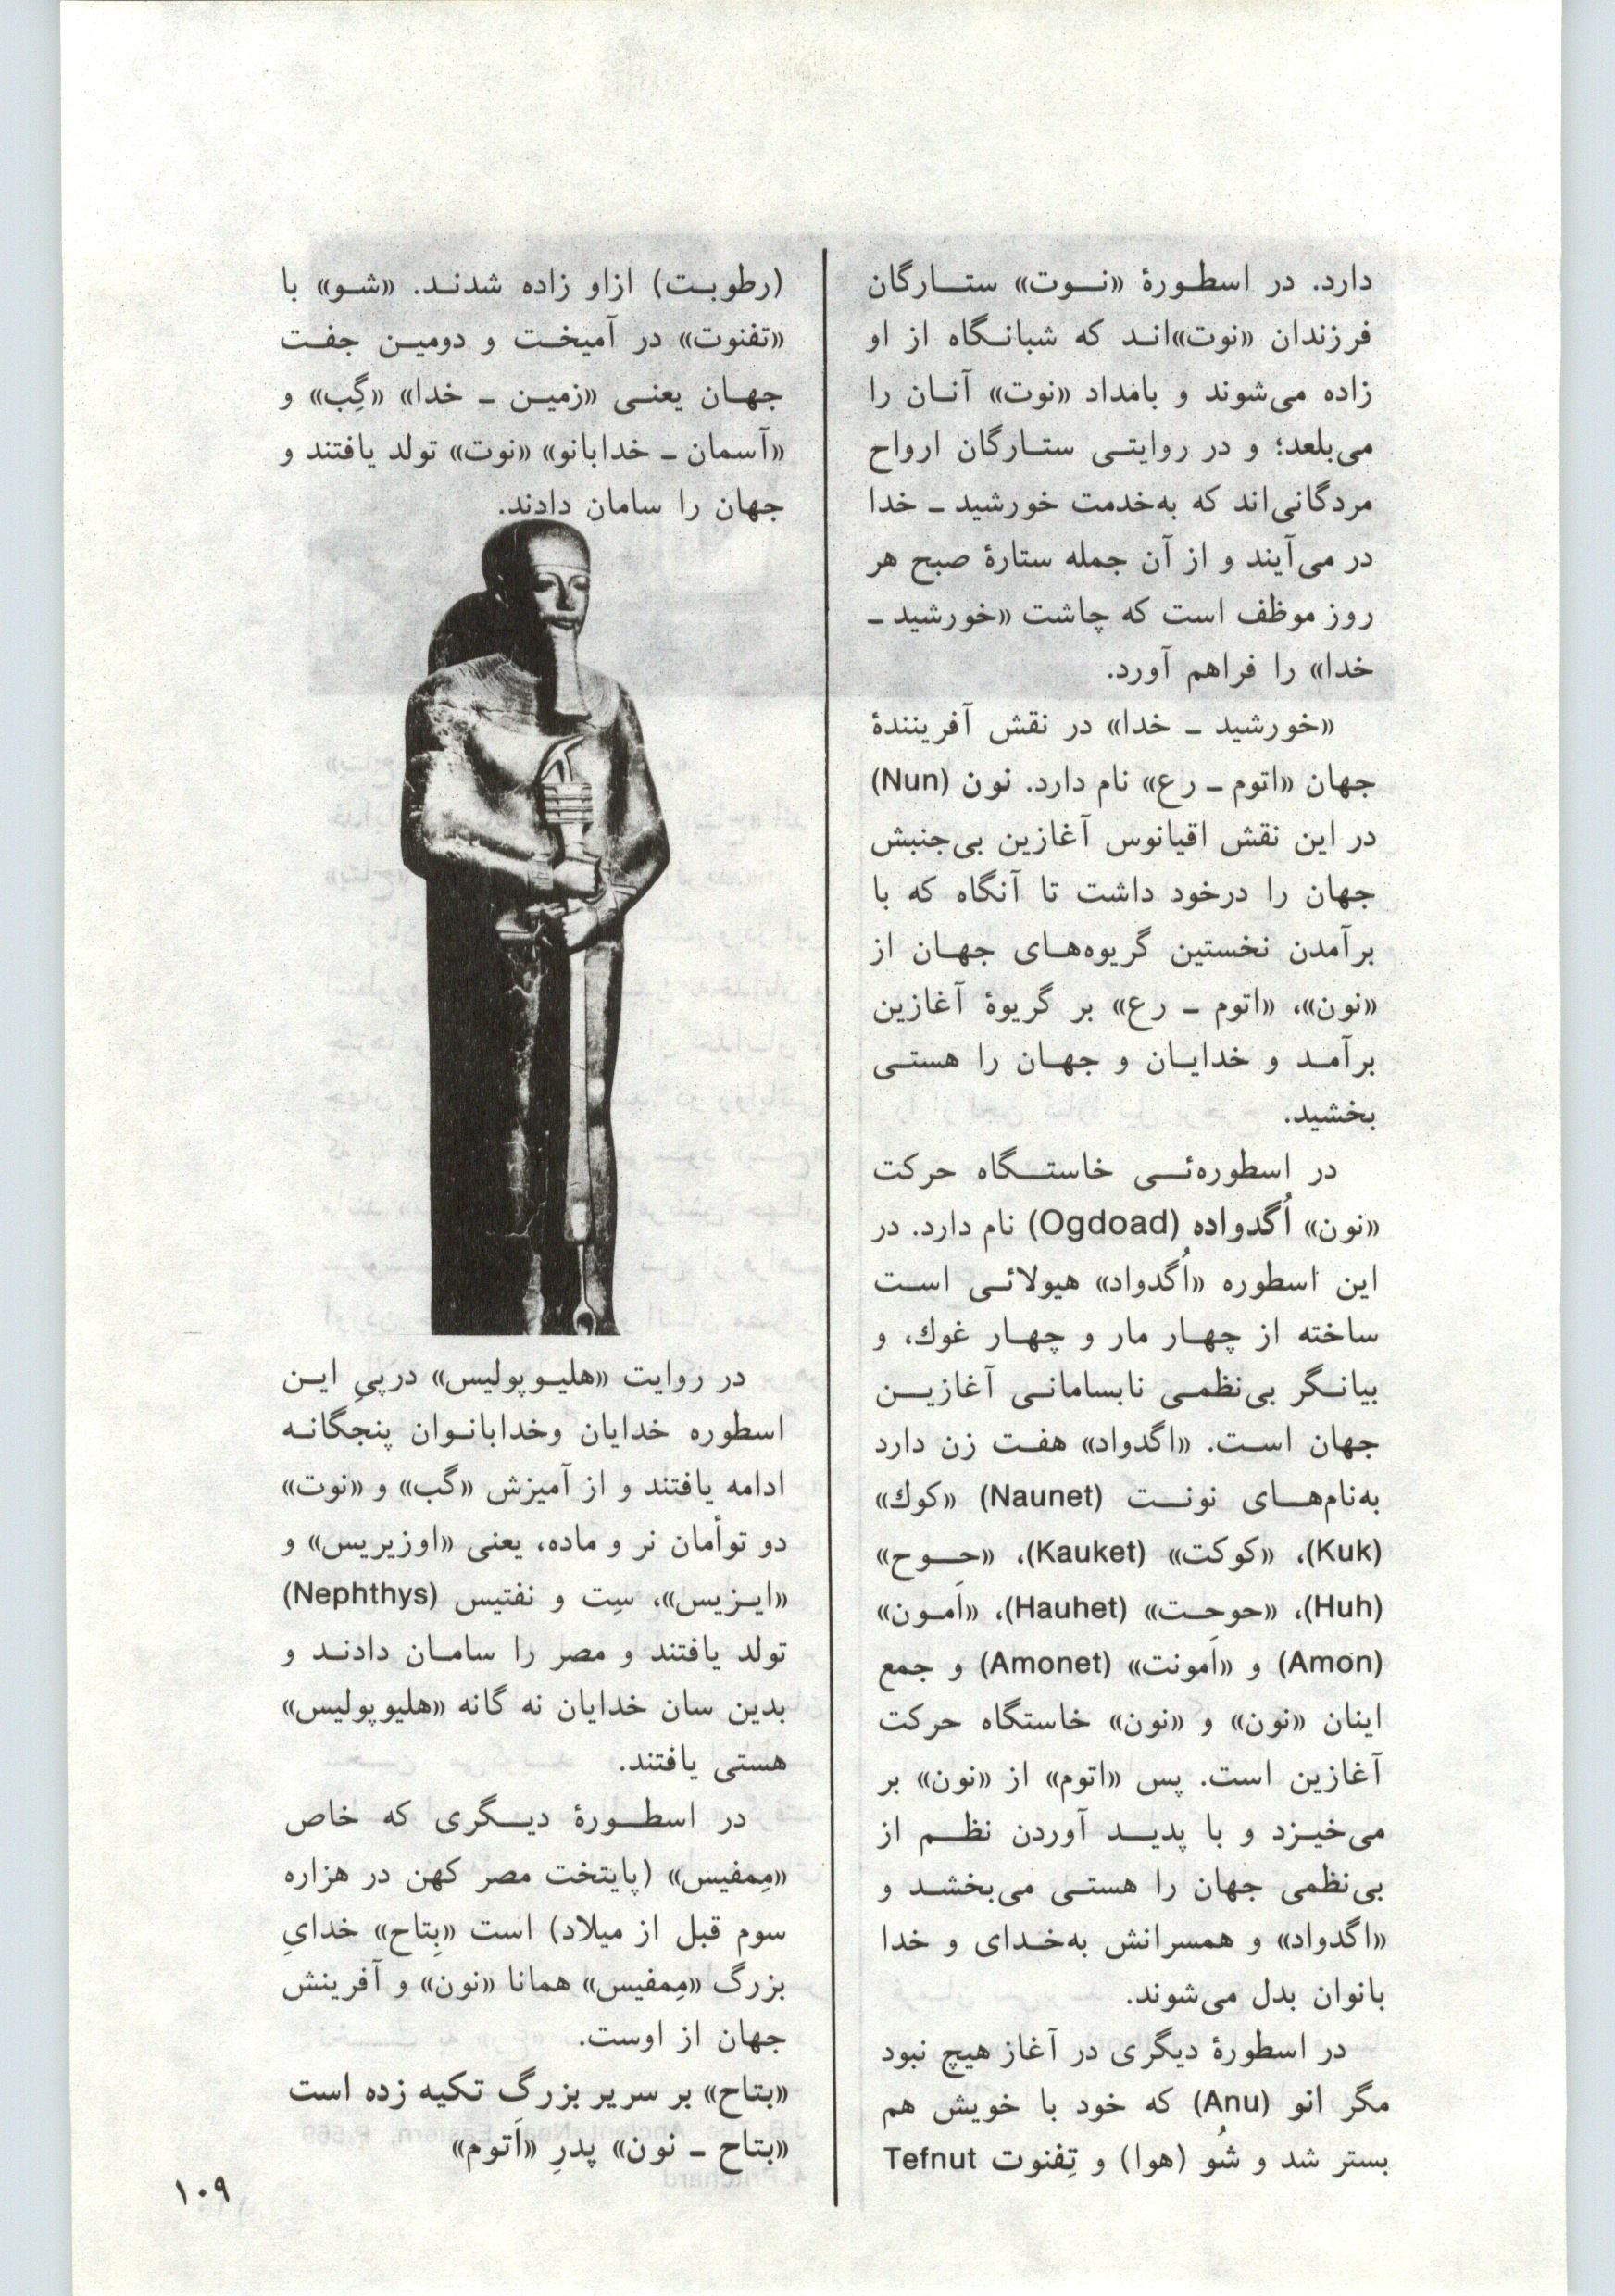 دارد. در اسطورهٔ «نوت» ستارگان
فرزندان «نوت»اند که شبانگاه از او
زاده می‌شوند و بامداد «نوت» آنان را
می‌بلعد؛ و در روایتی ستارگان ارواح
مردگانی‌اند که به‌خدمت خورشید ـ خدا
در می‌آیند و از آن جمله ستارهٔ صبح هر
روز موظف است که چاشت «خورشید ـ
خدا» را فراهم آورد.
«خورشید ـ خدا» در نقش آفرینندهٔ
جهان «اتوم ـ رع» نام دارد. نون (Nun)
در این نقش اقیانوس آغازین بی‌جنبش
جهان را درخود داشت تا آنگاه که با
برآمدن نخستین گریوه‌های جهان از
«نون»، «اتوم ـ رع» بر گریوهٔ آغازین
برآمد و خدایان و جهان را هستی
بخشید.
در اسطوره‌ئی خاستگاه حرکت
«نون» اُگدواده (Ogdoad) نام دارد. در
این اسطوره «اُگدواد» هیولائی است
ساخته از چهار مار و چهار غوك، و
بیانگر بی‌نظمی نابسامانی آغازین
جهان است. «اگدواد» هفت زن دارد
به‌نام‌های نونت (Naunet) «کوك»
(Kuk)، «کوکت» (Kauket)، «حوح»
(Huh)، «حوحِت» (Hauhet)، «اَمون»
(Amon) و «اَمونت» (Amonet) و جمع
اینان «نون» و «نون» خاستگاه حرکت
آغازین است. پس «اتوم» از «نون» بر
می‌خیزد و با پدید آوردن نظم از
بی‌نظمی جهان را هستی می‌بخشد و
«اگدواد» و همسرانش به‌خدای و خدا
بانوان بدل می‌شوند.
در اسطورهٔ دیگری در آغاز هیچ نبود
مگر انو (Anu) که خود با خویش هم
بستر شد و شُو (هوا) و تِفنوت Tefnut
(رطوبت) ازاو زاده شدند. «شو» با
«تفنوت» در آمیخت و دومین جفت
جهان یعنی «زمین ـ خدا» «گِب» و
«آسمان ـ خدابانو» «نوت» تولد یافتند و
جهان را سامان دادند.
در روایت «هلیوپولیس» درپیِ این
اسطوره خدایان وخدابانوان پنجگانه
ادامه یافتند و از آمیزش «گب» و «نوت»
دو توأمان نر و ماده، یعنی «اوزیریس» و
«ایزیس»، سِت و نفتیس (Nephthys)
تولد یافتند و مصر را سامان دادند و
بدین سان خدایان نه گانه «هلیوپولیس»
هستی یافتند.
در اسطورهٔ دیگری که خاص
«مِمفیس» (پایتخت مصر کهن در هزاره
سوم قبل از میلاد) است «پِتاح» خدایِ
بزرگ «مِمفیس» همانا «نون» و آفرینش
جهان از اوست.
«بتاح» بر سریر بزرگ تکیه زده است
«بتاح ـ نون» پدرِ «اَتوم»
۱۰۹